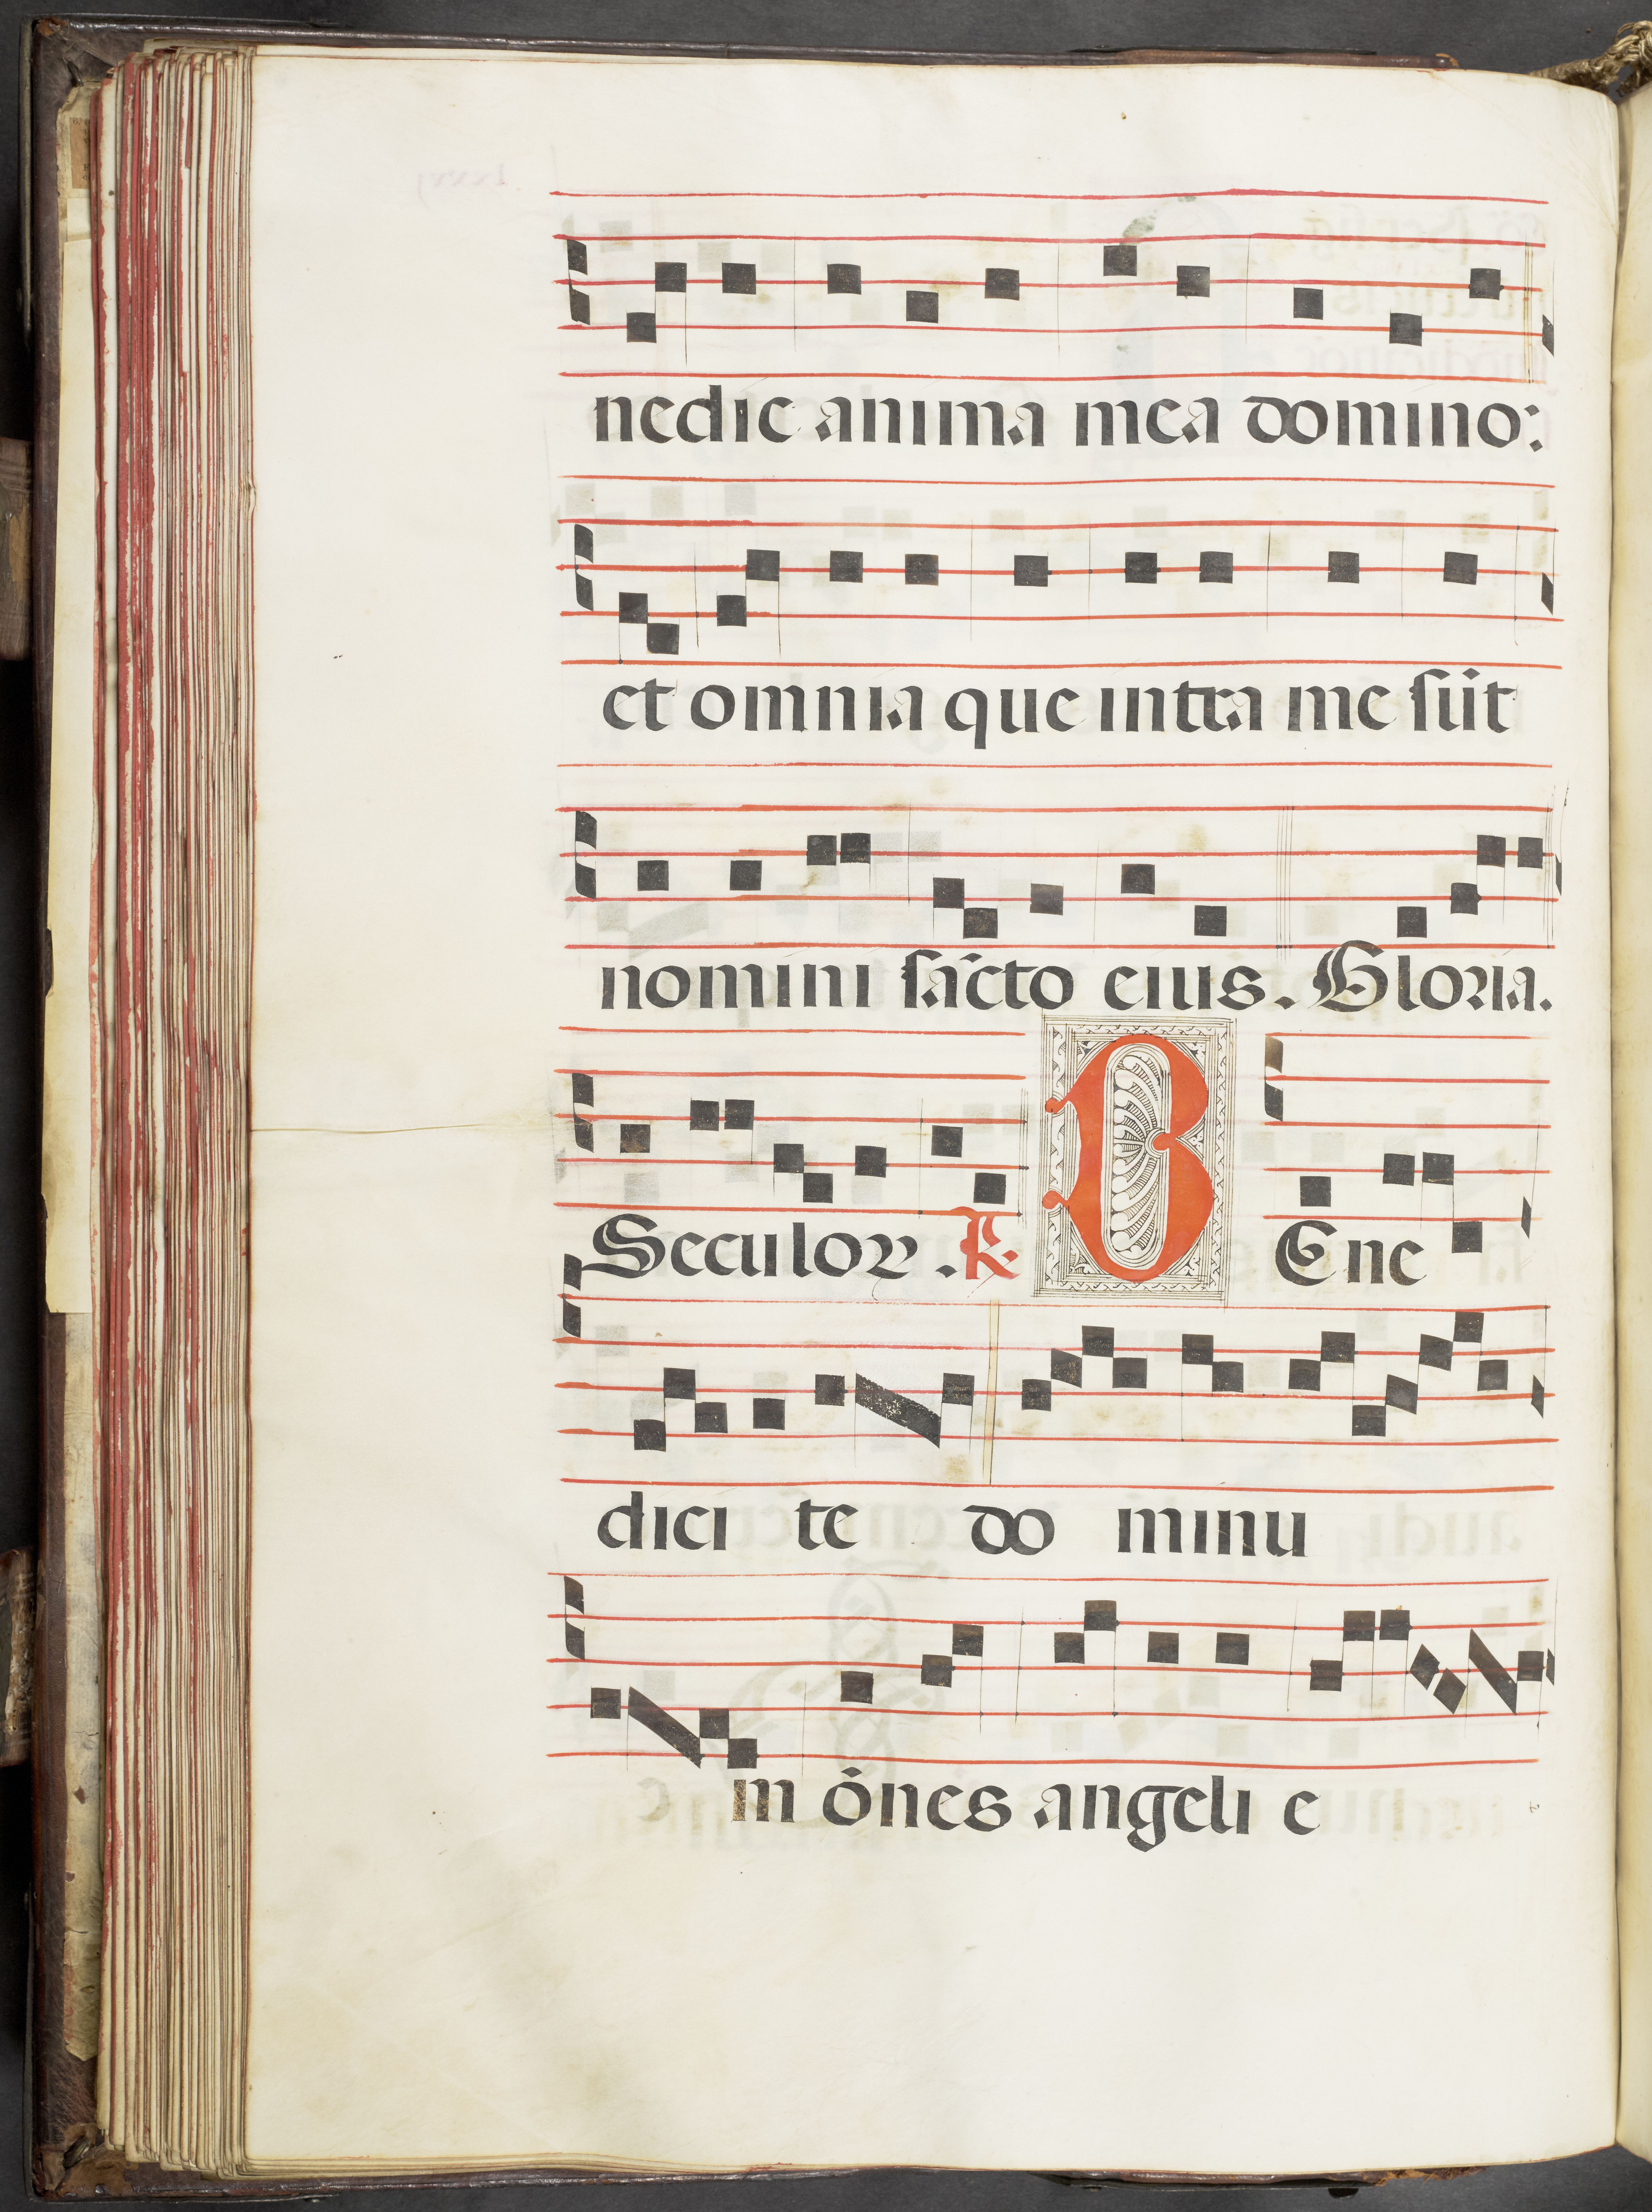 nedic anima mea domino:
et omnia que intra me sūt
nomini sācto eius. Gloria.
Seculoꝝ. ℟ BEne
dici te do minu
m ōnes angeli e